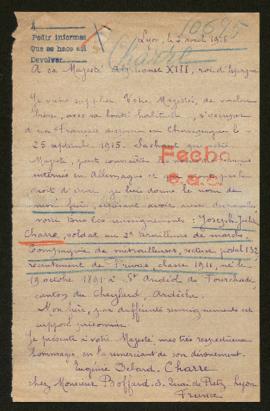 Pedir informes
Que se hace así
Devolver
10695
Charre
Lyon, le 2 avril 1916
A sa Majesté Alphonse XIII, roi d'Espagne
Je viens supplier Votre Majesté, de vouloir
bien, avec sa bonté habituelle, s'occuper
d'un Français disparu en Champagne le
25 septembre 1915. Sachant que Votre
Majesté, peut connaître
internés en Allemagne
droit d'écrire, je lui donne le nom de
mon frère, espérant avoir
Fecho
voici tous les renseignements : Joseph Jules
Charre, soldat au 2e tirailleurs de marche,
Compagnie de mitrailleurs, secteur postal 132,
recrutement de Privas, classe 1911, né le
19 octobre 1891 à St Andéol de Fourchade,
canton du Cheylard, Ardèche.
Mon frère, par différents renseignements est
supposé prisonnier.
Je présente à Votre Majesté, mes très respectueux
hommages, en la remerciant de son dévouement.
Eugénie Charre
chez Monsieur Boffard, 3, Lyon
France